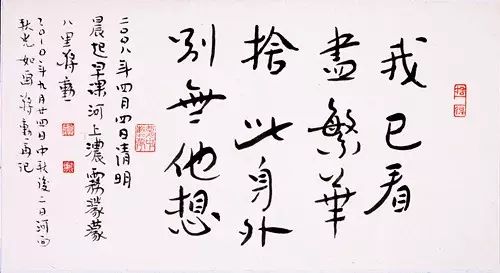 我已看
盡繁華
捨此身外
別無他想
二〇〇八年四月四日清明
晨起早課河上濃霧濛濛
八里蔣勳
二〇一〇年九月廿四日中秋後二日河面
秋光如画蔣勳再記